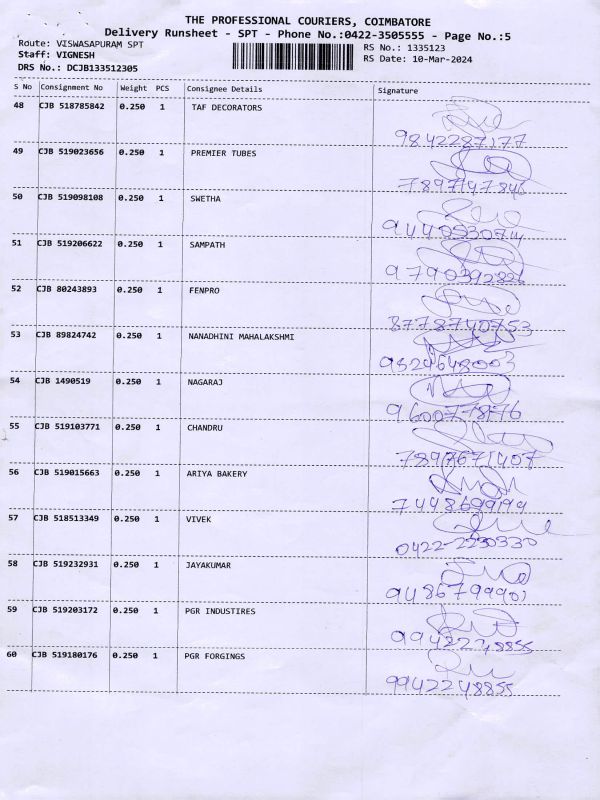 THE PROFESSIONAL COURIERS, COIMBATORE
Delivery Runsheet - SPT - Phone No.:0422-3505555 - Page No.:5
Route: VISWASAPURAM SPT
RS No.: 1335123
Staff: VIGNESH
RS Date: 10-Mar-2024
DRS No.: DCJB133512305
S No Consignment No Weight PCS Consignee Details Signature
48 CJB 518785842 0.250 1 TAF DECORATORS
9842287177
49 CJB 519023656 0.250 1 PREMIER TUBES
7897147846
50 CJB 519098108 0.250 1 SWETHA
51 CJB 519206622 0.250 1 SAMPATH
52 CJB 80243893 0.250 1 FENPRO
8778740753
53 CJB 89824742 0.250 1 NANADHINI MAHALAKSHMI
54 CJB 1490519 0.250 1 NAGARAJ
9600777876
55 CJB 519103771 0.250 1 CHANDRU
7897671407
56 CJB 519015663 0.250 1 ARIYA BAKERY
7448699194
57 CJB 518513349 0.250 1 VIVEK
0422-2230330
58 CJB 519232931 0.250 1 JAYAKUMAR
9486799901
59 CJB 519203172 0.250 1 PGR INDUSTIRES
9942248855
60 CJB 519180176 0.250 1 PGR FORGINGS
9942248855